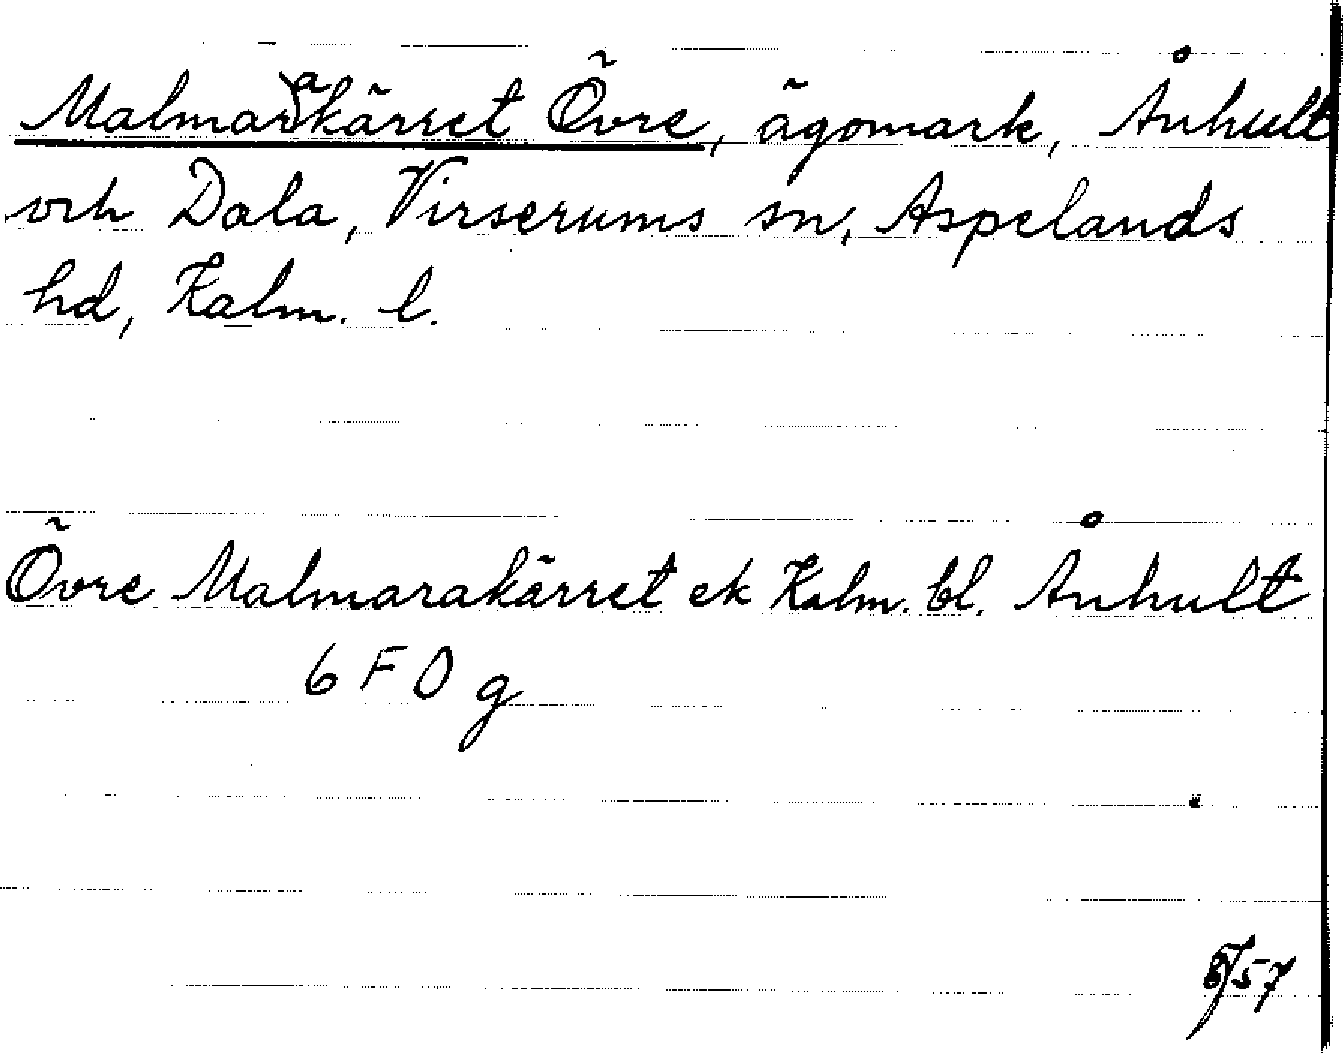 Malmarakärret Övre, ägomark, Ånhult
och Dala, Virserums sn, Aspelands
hd, Kalm. l.
Övre Malmarakärret ek Kalm. bl. Ånhult
6 F 0 g
57